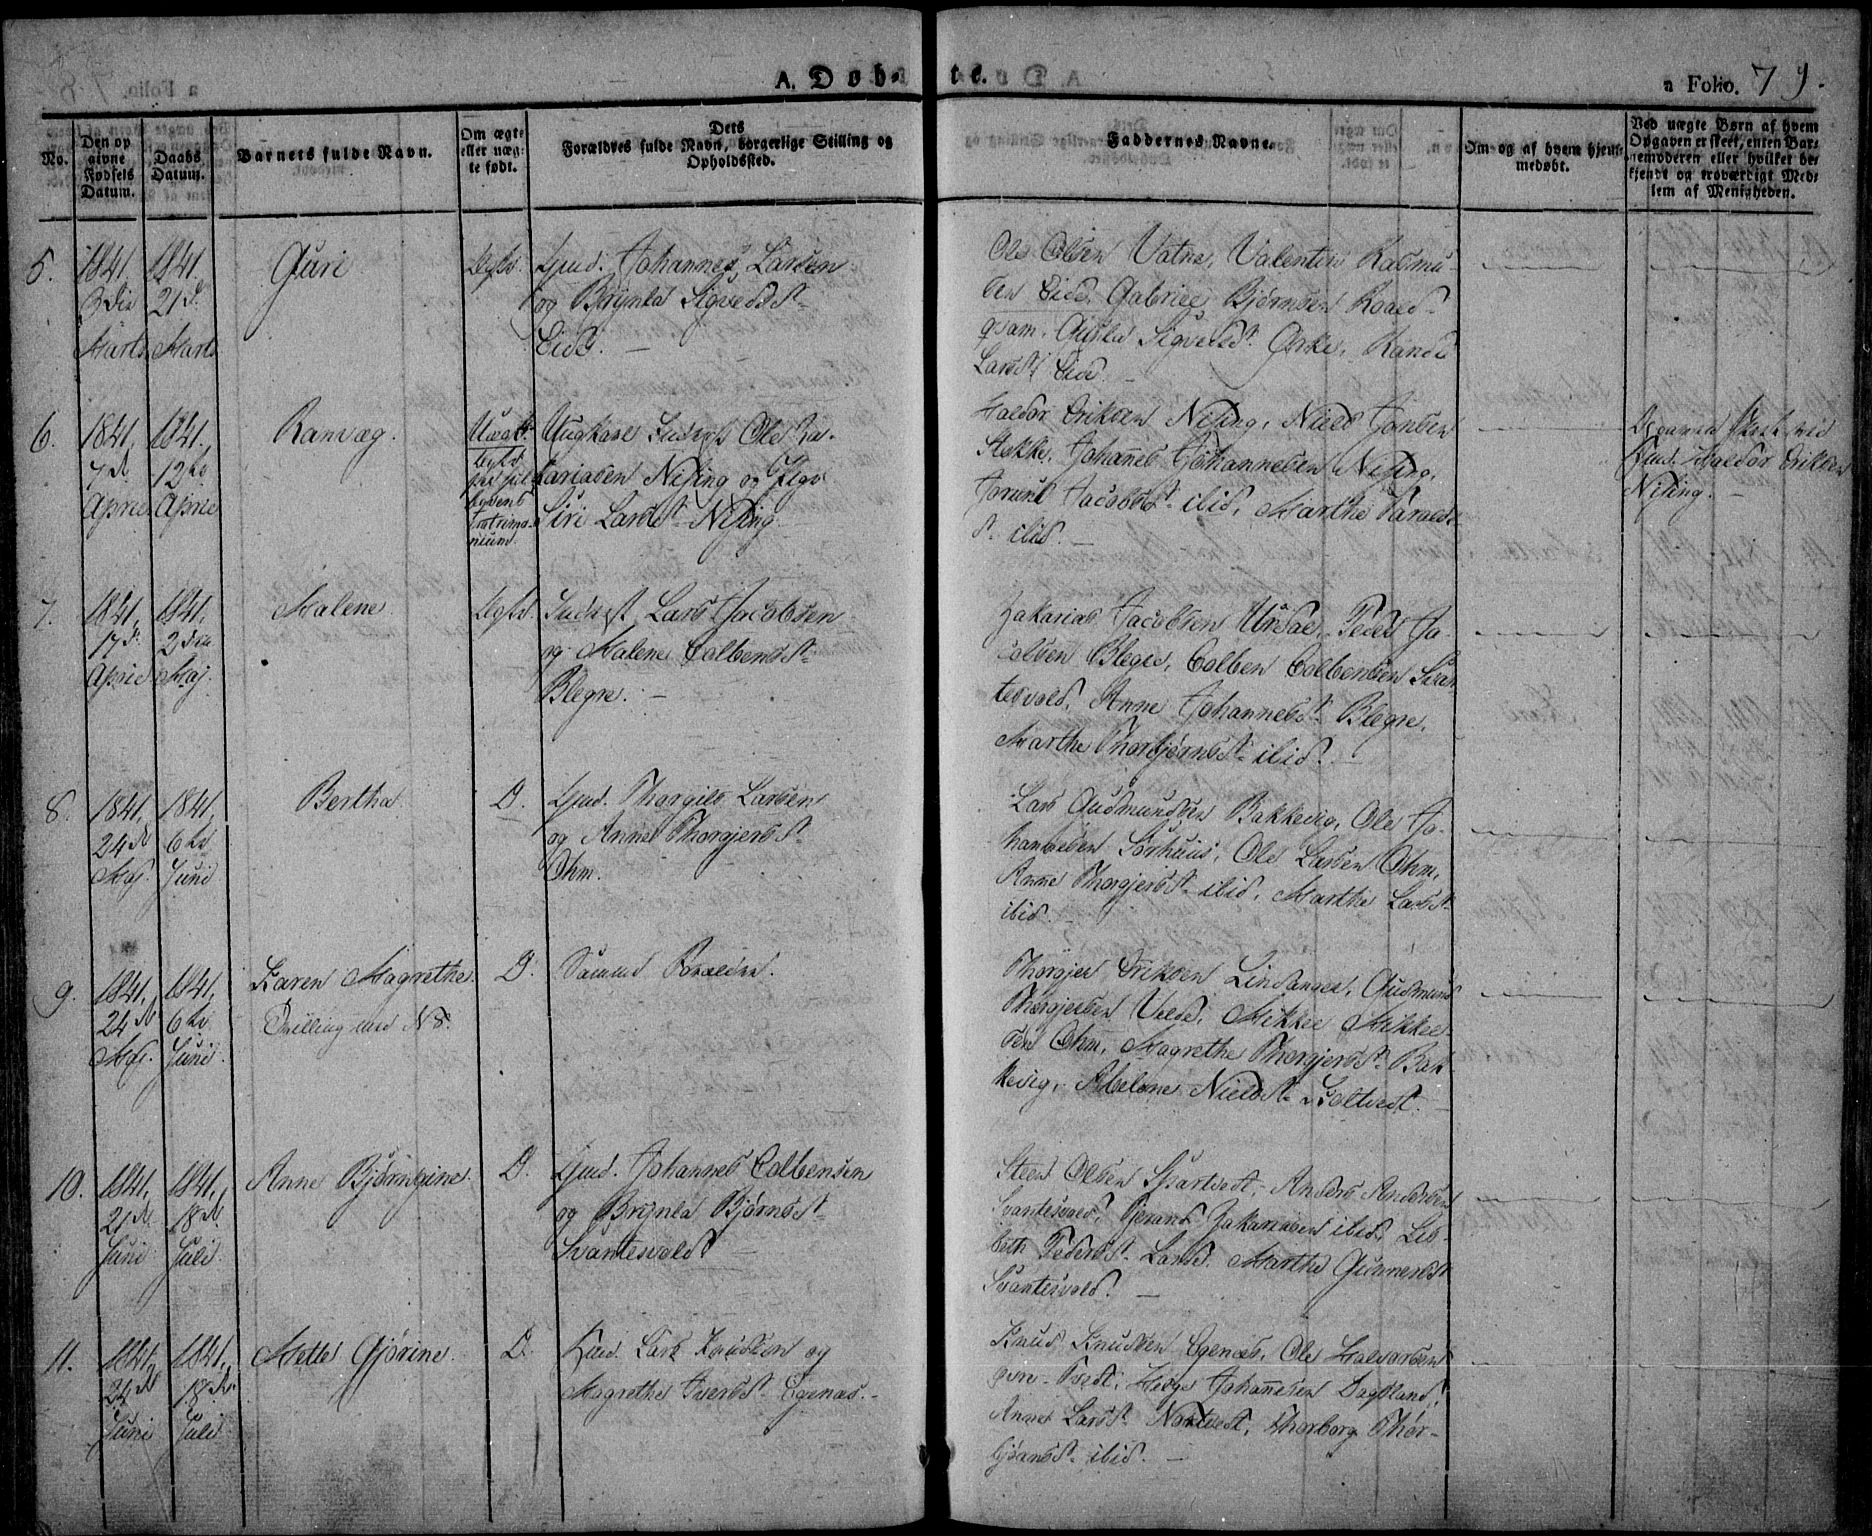 A. Døb-te.
a Folio. 79.
No.
Den op givne Fødsels Datum.
Daabs Datum.
Barnets fulde Navn.
Om ægte eller uægte født.
Dets Forældres fulde Navn, borgerlige Stilling og Opholdssted.
Faddernes Navne.
Om og af hvem hjemmedøbt.
Ved uægte Børn af hvem Opgaven er skeet, enten Barnemoderen eller hvilket bekjendt og troværdigt Medlem af Menigheden.
5.
1841.
3die
Marts
1841.
21de
Marts
Guri
Ægte.
Gmd. Johannes Larsen
og Brynla Sigvedsdt.
Eide. —
Ole Olsen Vatne, Valentin Rasmu-
sen Eide, Gabriel Bjørnsen Roald-
qvam, Gitla Sigveldst. Ørke,
Larsdt. Eide. —
6.
1841.
7de
April
1841.
12te
April
Ranvæg.
Uægte.
Ungkarl Inderst Ole Za-
kariasen Nising og Pige
Siri Larsdt. Nising
Haldor Eriksen Nising, Niels Jonsen
Stokke, Johannes Johannesen Nising,
Jorunt Jacobsdt. ibid, Marthe Haralds-
dt. ibid. —
Opgaven skeet ved
Gmd. Haldor Eriksen
Nising. —
7.
1841.
17de
April
1841.
2den
Maj.
Malene
Ægte.
Inderst Lars Jacobsen
og Malene Colbensdt.
Blegne. —
Zakarias Jacobsen Urdae, Peder Ja-
cobsen Blegne, Colben Colbensen Svan-
tesvold, Anne Johannesdt. Blegne,
Marthe Thorbjørnsdt. ibid. —
8.
1841.
24de
Maj.
1841.
6te
Juni
Bertha
D.
Gmd. Thorgils Larsen
og Anne Thorgjersdt.
Ohm.
Lars Gudmundsen Bakkevig, Ole Jo-
hannesen Sørhuus, Ole Larsen Ohm,
Anne Thorgjersdt. ibid, Marthe Larsdt.
ibid. —
9.
1841.
24de
Maj.
1841.
6te
Juni
Karen Magrethe.
Tvilling med N 8.
D.
Samme Forældre.
Thorgjer Eriksen Lindanger, Gudmund
Thorgjersen Velde, Mikkel Mikkel-
sen Ohm, Magrethe Thorgjersdt. Bak-
kevig, Abelone Nielsdt. Holtvedt. —
10.
1841.
21de
Juni
1841.
18de
Juli
Anne Bjørngine.
D.
Gmd. Johannes Colbensen
og Brynla Bjørnsdt.
Svantesvold —
Steen Olsen Svartvedt, Anders Andersen
Svantesvold, Gjerand Zakariasen ibid, Lis-
beth Pedersdt. Lande, Marthe Gunnersdt.
Svantesvold. —
11.
1841.
24de
Juni
1841.
18de
Juli
Mette Gjørine.
D.
Gmd. Lars Knudsen og
Magrethe Iversdt. Egenæs. —
Knud Knudsen Egenæs, Ole Halvorsen
Tvedt, Helge Johannesen Dagsland,
Anne Larsdt. Nortvedt, Thorborg Thor-
bjørnsdt. ibid. —